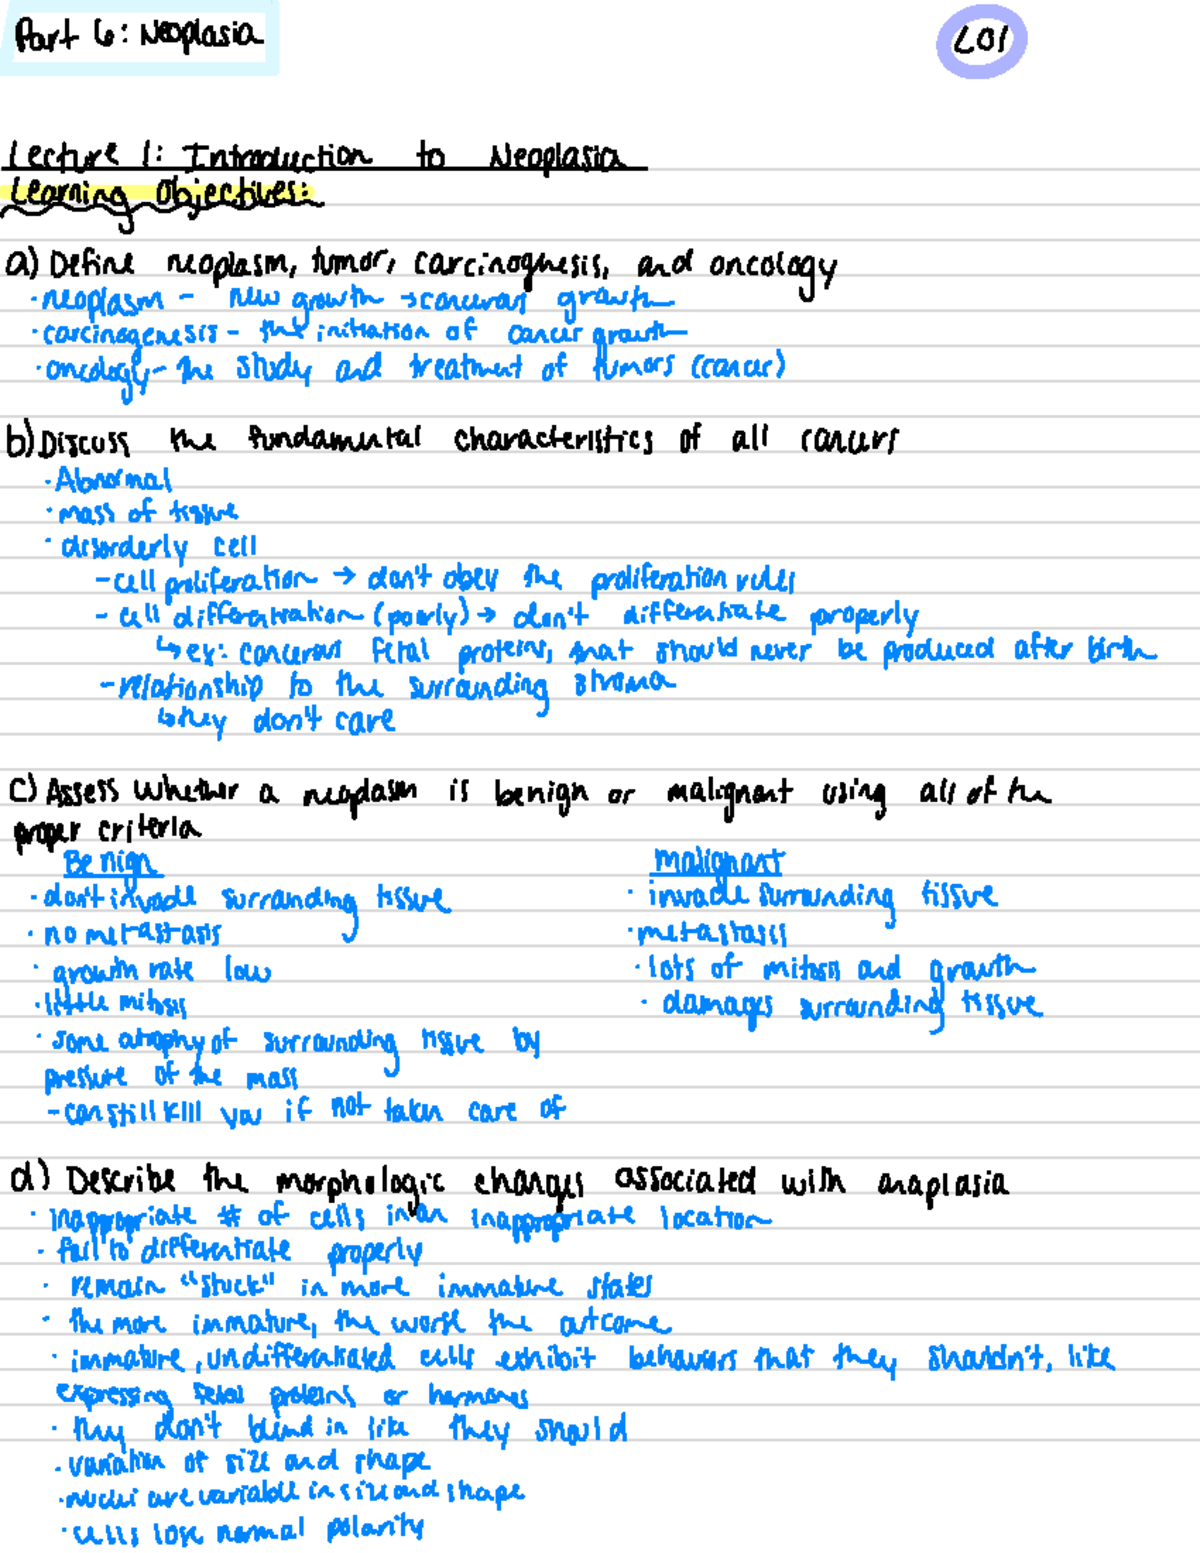 Part 6: Neoplasia
LO1
Lecture 1: Introduction to Neoplasia
Learning Objectives:
a) Define neoplasm, tumor, carcinoghesis, and oncology
· neoplasm - new growth → cancerous growth
· carcinogenesis - the initiation of cancer growth
· oncology - the study and treatment of tumors (cancer)
b) Discuss the fundamental characteristics of all cancers
· Abnormal
· mass of tissue
· disorderly cell
- cell proliferation → don't obey the proliferation rules
- cell differentiation (poorly) → don't differentiate properly
↳ ex: cancerous fetal proteins, that should never be produced after birth
- relationship to the surrounding stroma
↳ they don't care
c) Assess whether a neoplasm is benign or malignant using all of the
proper criteria
Benign
Malignant
· don't invade surrounding tissue
· invade surrounding tissue
· no metastasis
· metastasis
· growth rate low
· lots of mitosis and growth
· little mitosis
· damages surrounding tissue
· some atrophy of surrounding tissue by
pressure of the mass
- can still kill you if not taken care of
d) Describe the morphologic changes associated with anaplasia
· inappropriate # of cells in an inappropriate location
· fail to differentiate properly
· remain "stuck" in more immature states
· the more immature, the worse the outcome
· immature, undifferentiated cells exhibit behaviors that they shouldn't, like
expressing fetal proteins or hormones
· they don't blend in like they should
· variation of size and shape
· nuclei are variable in size and shape
· cells lose normal polarity